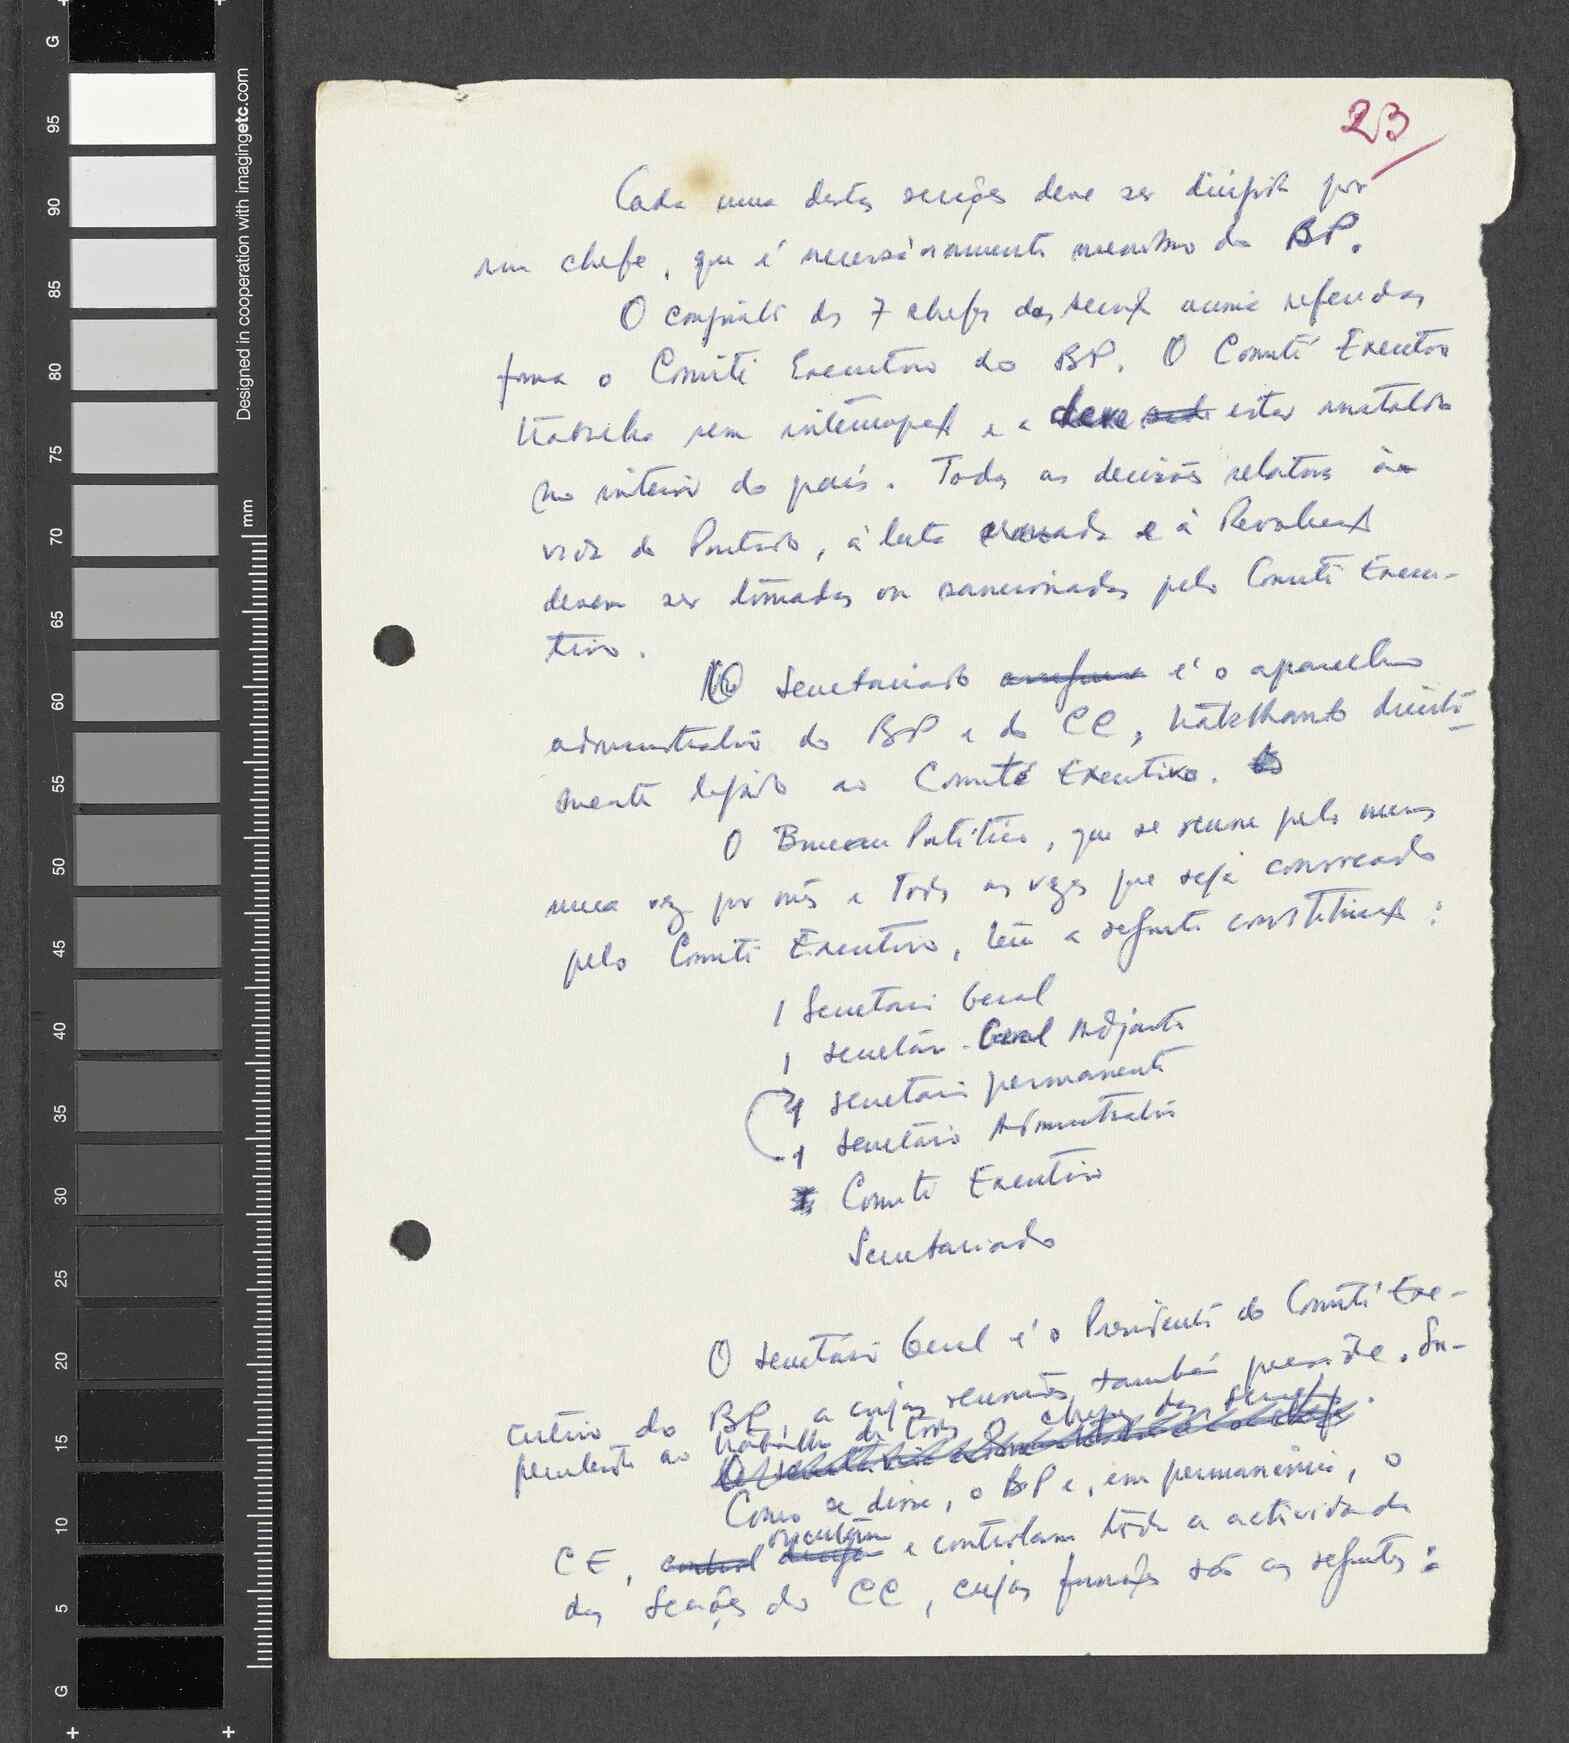 23
Cada uma destas secções deve ser dirigida por
um chefe, que é necessàriamente membro do BP.
O conjunto dos 7 chefes das secções acima referidas
forma o Comité Executivo do BP. O Comité Executivo
trabalha sem interrupção e deve estar instalado
no interior do país. Todas as decisões relativas à
vida do Partido, à luta armada e à Revolução
devem ser tomadas ou sancionadas pelo Comité Execu-
tivo.
O Secretariado é o aparelho
administrativo do BP e do CC, trabalhando directa-
mente ligado ao Comité Executivo.
O Bureau Político, que se reune pelo menos
uma vez por mês e todas as vezes que seja convocado
pelo Comité Executivo, tem a seguinte constituição:
1 Secretário Geral
1 Secretário-Geral Adjunto
1 Secretário permanente
1 Secretário Administrativo
Comité Executivo
Secretariado
O Secretário Geral é o Presidente do Comité Exe-
cutivo do BP, a cujas reuniões também preside. Su-
perintende ao trabalho de todos os chefes das Secções.
Como se disse, o BP e, em permanência, o
CE, orientam e controlam toda a actividade
das Secções do CC, cujas funções são as seguintes:
Designed in cooperation with imagingetc.com
mm
G
95
90
85
80
75
70
65
60
55
50
45
40
35
30
25
20
15
10
5
G